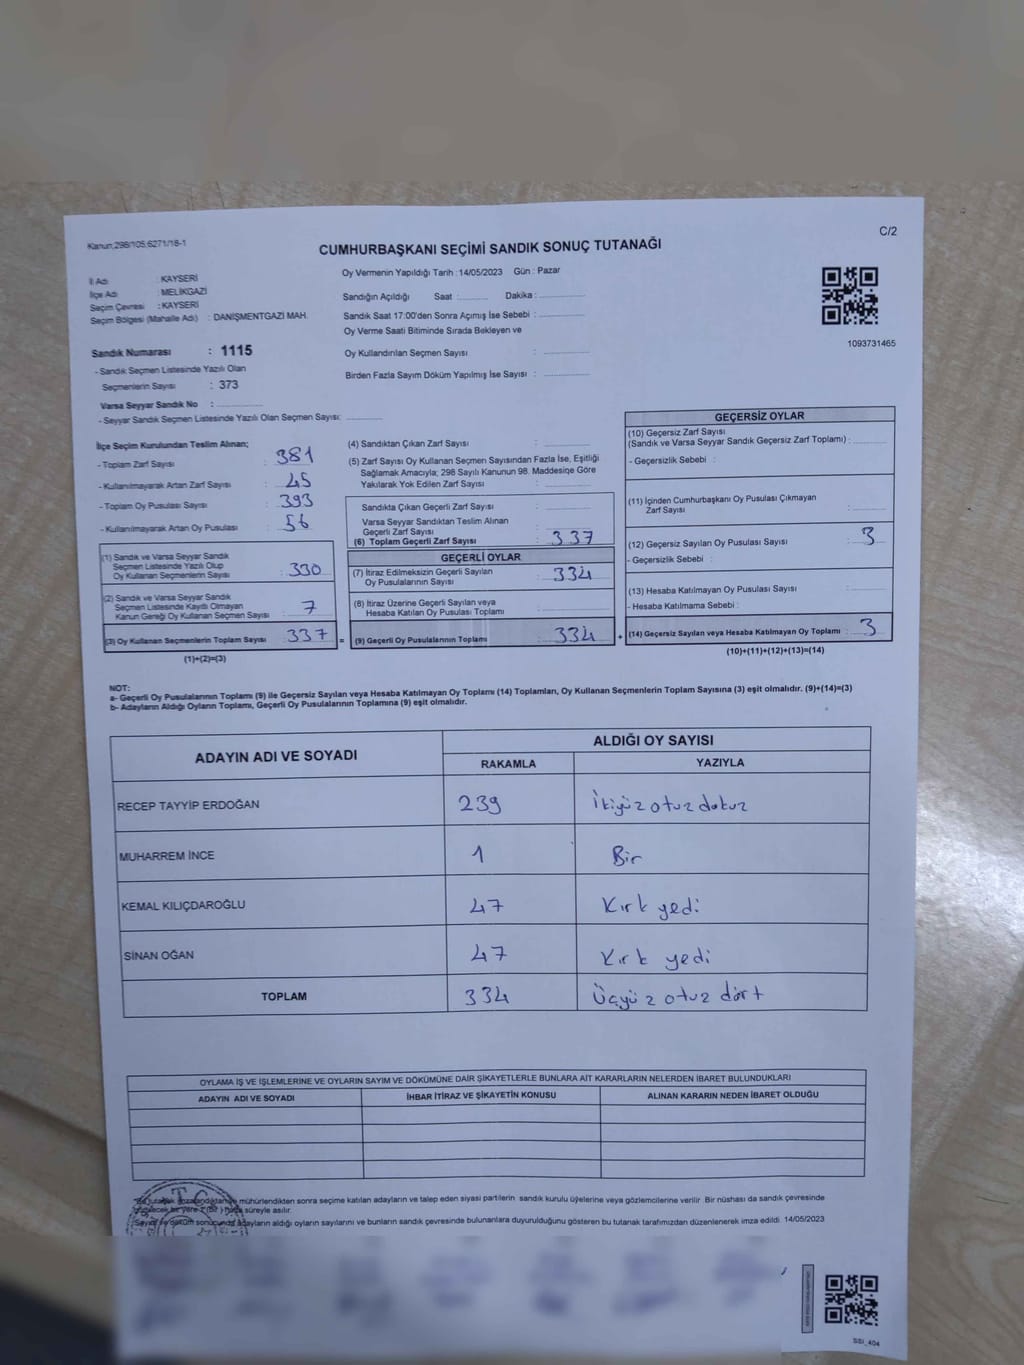 Kanun:298/105;6271/18-1
C/2
CUMHURBAŞKANI SEÇİMİ SANDIK SONUÇ TUTANAĞI
İl Adı : KAYSERİ
İlçe Adı : MELİKGAZİ
Seçim Çevresi : KAYSERİ
Seçim Bölgesi (Mahalle Adı) : DANİŞMENTGAZİ MAH.
Oy Vermenin Yapıldığı Tarih : 14/05/2023 Gün : Pazar
Sandığın Açıldığı Saat : Dakika :
Sandık Saat 17:00'den Sonra Açımış İse Sebebi :
Oy Verme Saati Bitiminde Sırada Bekleyen ve
Oy Kullandırılan Seçmen Sayısı :
Birden Fazla Sayım Döküm Yapılmış İse Sayısı :
1093731465
Sandık Numarası : 1115
- Sandık Seçmen Listesinde Yazılı Olan
Seçmenlerin Sayısı : 373
Varsa Seyyar Sandık No :
- Seyyar Sandık Seçmen Listesinde Yazılı Olan Seçmen Sayısı:
İlçe Seçim Kurulundan Teslim Alınan;
- Toplam Zarf Sayısı : 381
- Kullanılmayarak Artan Zarf Sayısı : 45
- Toplam Oy Pusulası Sayısı : 393
- Kullanılmayarak Artan Oy Pusulası : 56
(1) Sandık ve Varsa Seyyar Sandık
Seçmen Listesinde Yazılı Olup
Oy Kullanan Seçmenlerin Sayısı : 330
(2) Sandık ve Varsa Seyyar Sandık
Seçmen Listesinde Kayıtlı Olmayan
Kanun Gereği Oy Kullanan Seçmen Sayısı : 7
(3) Oy Kullanan Seçmenlerin Toplam Sayısı : 337 =
(1)+(2)=(3)
(4) Sandıktan Çıkan Zarf Sayısı :
(5) Zarf Sayısı Oy Kullanan Seçmen Sayısından Fazla İse, Eşitliği
Sağlamak Amacıyla; 298 Sayılı Kanunun 98. Maddesiqe Göre
Yakılarak Yok Edilen Zarf Sayısı :
Sandıkta Çıkan Geçerli Zarf Sayısı :
Varsa Seyyar Sandıktan Teslim Alınan
Geçerli Zarf Sayısı :
(6) Toplam Geçerli Zarf Sayısı : 337
GEÇERLİ OYLAR
(7) İtiraz Edilmeksizin Geçerli Sayılan
Oy Pusulalarının Sayısı : 334
(8) İtiraz Üzerine Geçerli Sayılan veya
Hesaba Katılan Oy Pusulası Toplamı :
(9) Geçerli Oy Pusulalarının Toplamı : 334 +
GEÇERSİZ OYLAR
(10) Geçersiz Zarf Sayısı
(Sandık ve Varsa Seyyar Sandık Geçersiz Zarf Toplamı) :
- Geçersizlik Sebebi :
(11) İçinden Cumhurbaşkanı Oy Pusulası Çıkmayan
Zarf Sayısı :
(12) Geçersiz Sayılan Oy Pusulası Sayısı : 3
- Geçersizlik Sebebi :
(13) Hesaba Katılmayan Oy Pusulası Sayısı :
- Hesaba Katılmama Sebebi :
(14) Geçersiz Sayılan veya Hesaba Katılmayan Oy Toplamı : 3
(10)+(11)+(12)+(13)=(14)
NOT:
a- Geçerli Oy Pusulalarının Toplamı (9) ile Geçersiz Sayılan veya Hesaba Katılmayan Oy Toplamı (14) Toplamları, Oy Kullanan Seçmenlerin Toplam Sayısına (3) eşit olmalıdır. (9)+(14)=(3)
b- Adayların Aldığı Oyların Toplamı, Geçerli Oy Pusulalarının Toplamına (9) eşit olmalıdır.
ADAYIN ADI VE SOYADI
ALDIĞI OY SAYISI
RAKAMLA YAZIYLA
RECEP TAYYİP ERDOĞAN 239 İkiyüz otuz dokuz
MUHARREM İNCE 1 Bir
KEMAL KILIÇDAROĞLU 47 Kırk yedi
SİNAN OĞAN 47 Kırk yedi
TOPLAM 334 Üçyüz otuz dört
OYLAMA İŞ VE İŞLEMLERİNE VE OYLARIN SAYIM VE DÖKÜMÜNE DAİR ŞİKAYETLERLE BUNLARA AİT KARARLARIN NELERDEN İBARET BULUNDUKLARI
ADAYIN ADI VE SOYADI İHBAR İTİRAZ VE ŞİKAYETİN KONUSU ALINAN KARARIN NEDEN İBARET OLDUĞU
mühürlendikten sonra seçime katılan adayların ve talep eden siyasi partilerin sandık kurulu üyelerine veya gözlemcilerine verilir. Bir nüshası da sandık çevresinde
süreyle asılır.
adayların aldığı oyların sayılarını ve bunların sandık çevresinde bulunanlara duyurulduğunu gösteren bu tutanak tarafımızdan düzenlenerek imza edildi. 14/05/2023
T.C.
SSI_404